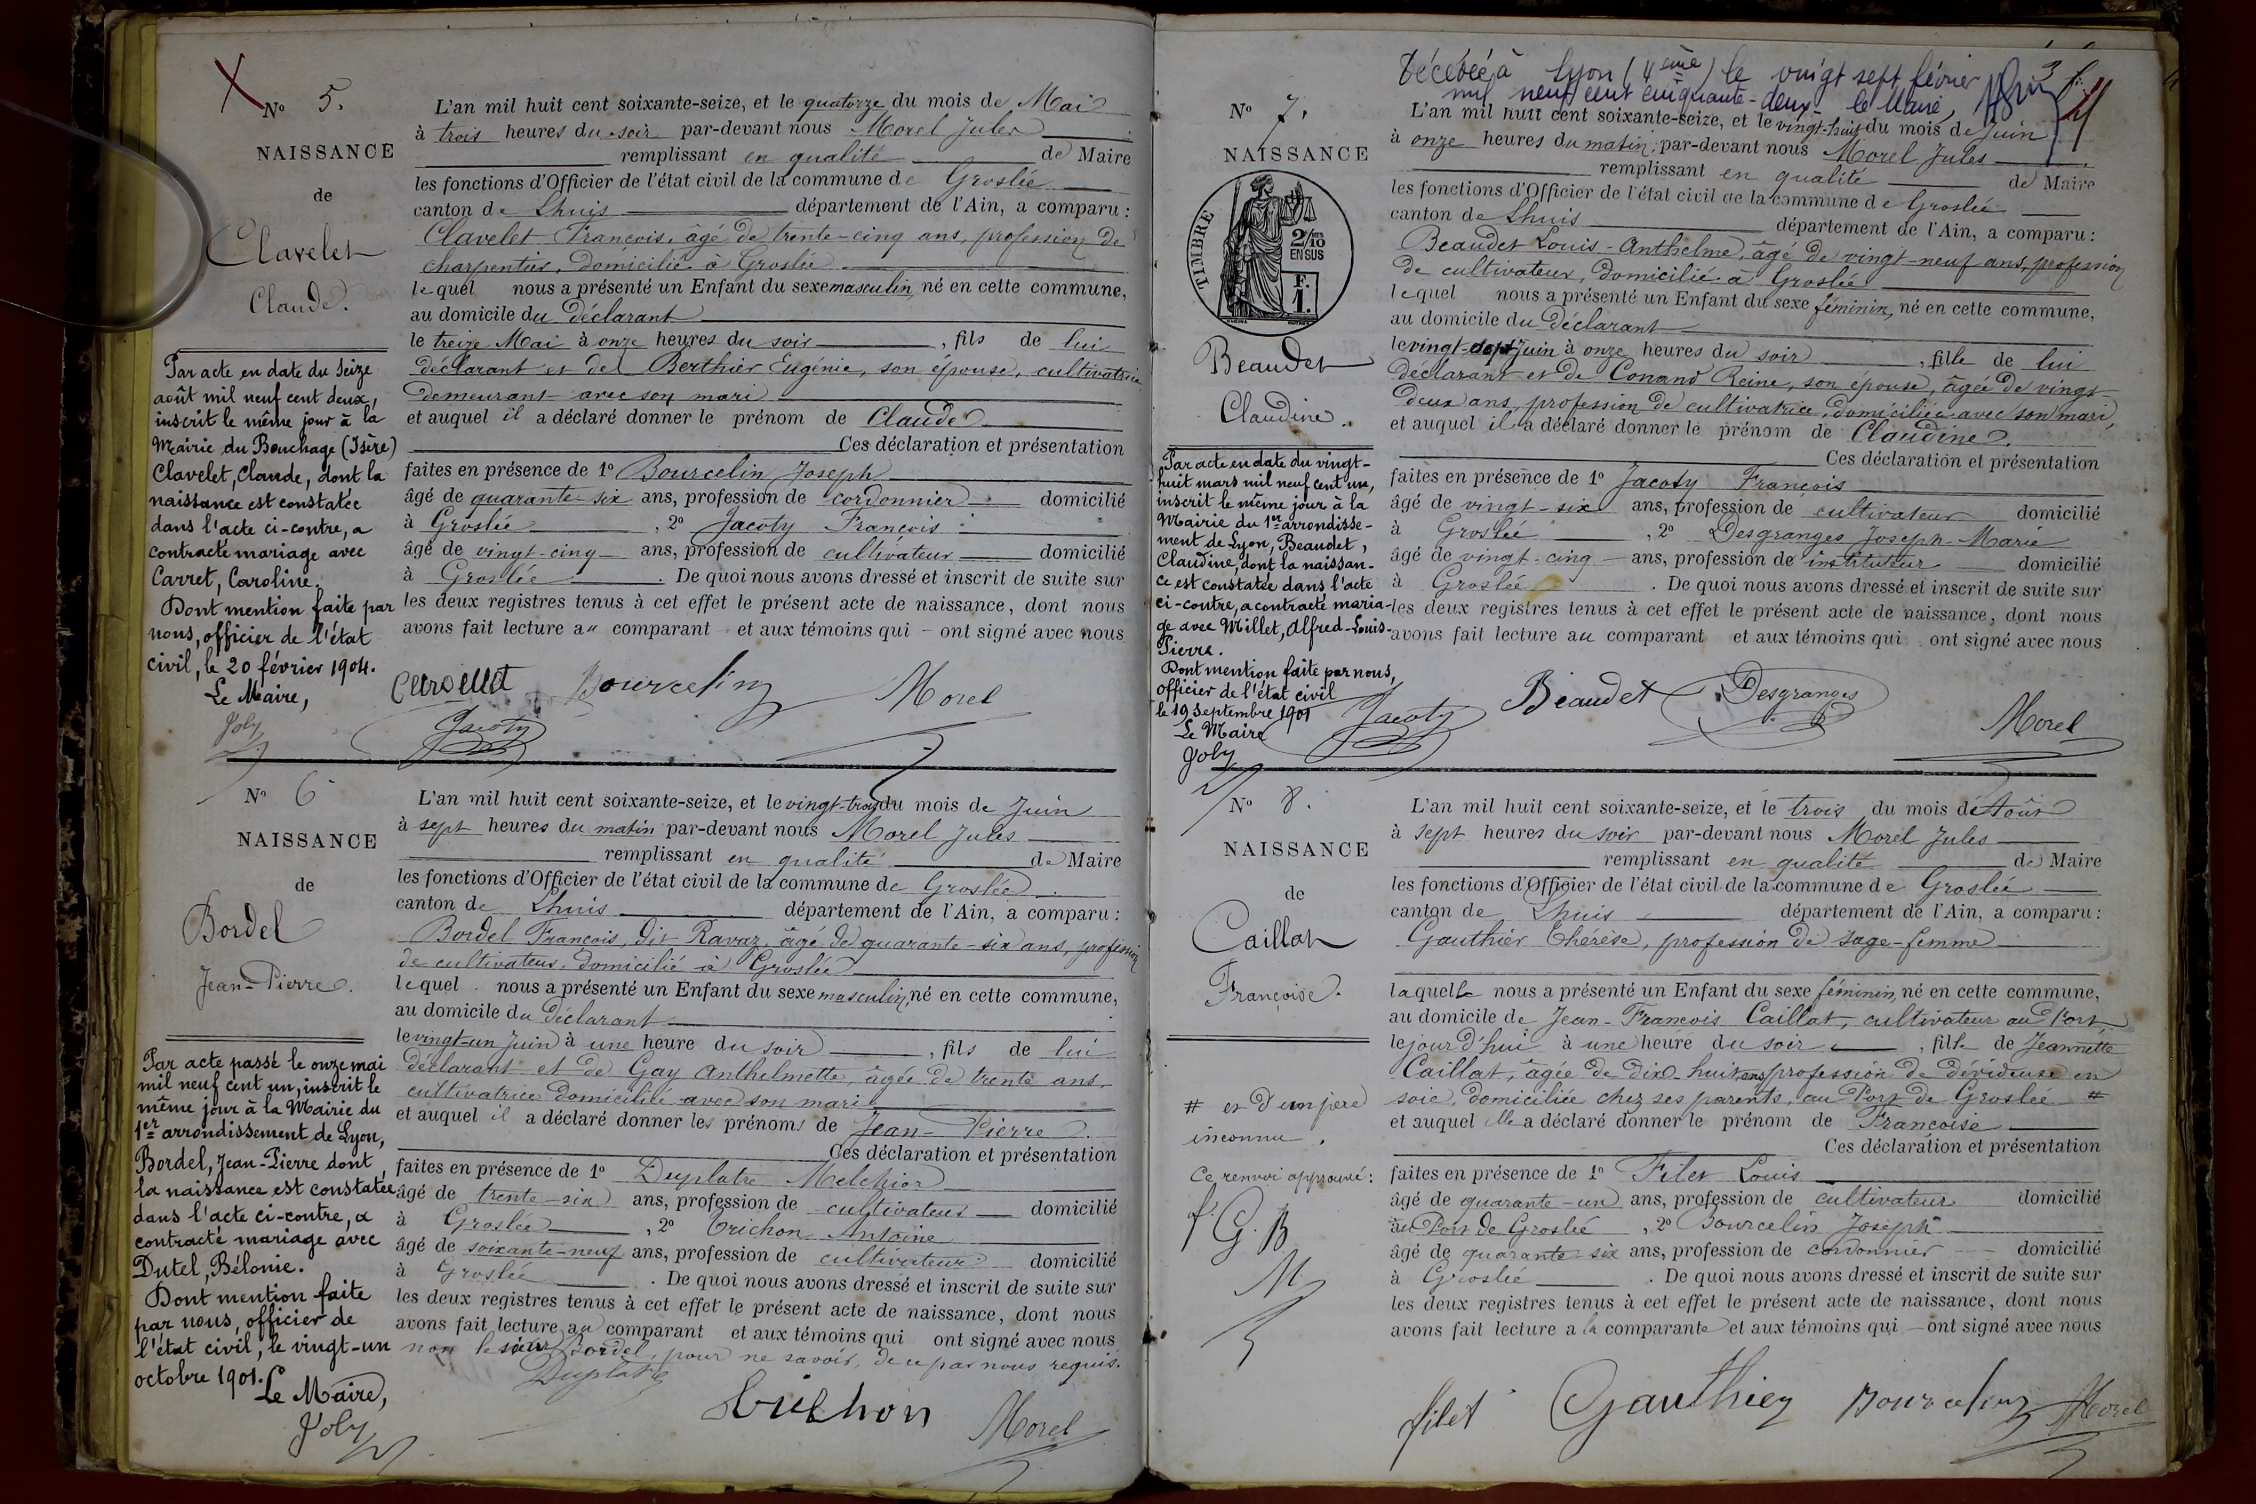 N° 5.
NAISSANCE
de
Clavelet
Claude.
Par acte en date du seize
août mil neuf cent deux,
inscrit le même jour à la
Mairie du Bouchage (Isère)
Clavelet, Claude, dont la
naissance est constatée
dans l'acte ci-contre, a
contracté mariage avec
Carret, Caroline.
Dont mention faite par
nous, officier de l'état
civil, le 20 février 1904.
Le Maire,
Joly
L'an mil huit cent soixante-seize, et le quatorze du mois de Mai
à trois heures du soir par-devant nous Morel Jules
remplissant en qualité de Maire
les fonctions d'Officier de l'état civil de la commune de Groslée
canton de Lhuis département de l'Ain, a comparu :
Clavelet François, âgé de trente-cinq ans, profession de
charpentier, domicilié à Groslée
lequel nous a présenté un Enfant du sexe masculin, né en cette commune,
au domicile du déclarant
le treize Mai à onze heures du soir , fils de lui
déclarant et de Berthier Eugénie, son épouse, cultivatrice
demeurant avec son mari
et auquel il a déclaré donner le prénom de Claude
Ces déclaration et présentation
faites en présence de 1° Bourcelin Joseph
âgé de quarante-six ans, profession de cordonnier domicilié
à Groslée , 2° Jacoty François
âgé de vingt-cinq ans, profession de cultivateur domicilié
à Groslée . De quoi nous avons dressé et inscrit de suite sur
les deux registres tenus à cet effet le présent acte de naissance, dont nous
avons fait lecture au comparant et aux témoins qui ont signé avec nous
Bourcelin Morel
Jacoty
N° 6
NAISSANCE
de
Bordel
Jean-Pierre.
Par acte passé le onze mai
mil neuf cent un, inscrit le
même jour à la Mairie du
1er arrondissement de Lyon,
Bordel, Jean-Pierre dont
la naissance est constatée
dans l'acte ci-contre, a
contracté mariage avec
Dutel, Bélonie.
Dont mention faite
par nous, officier de
l'état civil, le vingt-un
octobre 1901.
Le Maire,
Joly
L'an mil huit cent soixante-seize, et le vingt-trois du mois de Juin
à sept heures du matin par-devant nous Morel Jules
remplissant en qualité de Maire
les fonctions d'Officier de l'état civil de la commune de Groslée
canton de Lhuis département de l'Ain, a comparu :
Bordel François, dit Ravaz, âgé de quarante-six ans, profession
de cultivateur, domicilié à Groslée
lequel nous a présenté un Enfant du sexe masculin, né en cette commune,
au domicile du déclarant
le vingt-un Juin à une heure du soir , fils de lui
déclarant et de Gay Anthelmette, âgée de trente ans,
cultivatrice domiciliée avec son mari
et auquel il a déclaré donner les prénoms de Jean-Pierre
Ces déclaration et présentation
faites en présence de 1° Duplatre Melchior
âgé de trente-six ans, profession de cultivateur domicilié
à Groslée , 2° Trichon Antoine
âgé de soixante-neuf ans, profession de cultivateur domicilié
à Groslée . De quoi nous avons dressé et inscrit de suite sur
les deux registres tenus à cet effet le présent acte de naissance, dont nous
avons fait lecture au comparant et aux témoins qui ont signé avec nous
non le sieur Bordel, pour ne savoir, de ce par nous requis.
Duplatre
Trichon
Morel
Décédée à Lyon (4ème) le vingt sept février
mil neuf cent cinquante-deux le Maire,
N° 7.
NAISSANCE
TIMBRE
2/10
EN SUS
F.
1.
Beaudet
Claudine.
Par acte en date du vingt-
huit mars mil neuf cent un,
inscrit le même jour à la
Mairie du 1er arrondisse-
ment de Lyon, Beaudet,
Claudine, dont la naissan-
ce est constatée dans l'acte
ci-contre, a contracté maria-
ge avec Millet, Alfred-Louis-
Pierre.
Dont mention faite par nous,
officier de l'état civil
le 19 Septembre 1901
Le Maire
Joly
L'an mil huit cent soixante-seize, et le vingt-huit du mois de Juin
à onze heures du matin, par-devant nous Morel Jules
remplissant en qualité de Maire
les fonctions d'Officier de l'état civil de la commune de Groslée
canton de Lhuis département de l'Ain, a comparu :
Beaudet Louis-Anthelme, âgé de vingt-neuf ans, profession
de cultivateur, domicilié à Groslée
lequel nous a présenté un Enfant du sexe féminin, né en cette commune,
au domicile du déclarant
le vingt-sept Juin à onze heures du soir , fille de lui
déclarant et de Conand Reine, son épouse, âgée de vingt
deux ans, profession de cultivatrice, domiciliée avec son mari,
et auquel il a déclaré donner le prénom de Claudine.
Ces déclaration et présentation
faites en présence de 1° Jacoty François
âgé de vingt-six ans, profession de cultivateur domicilié
à Groslée , 2° Desgranges Joseph-Marie
âgé de vingt-cinq ans, profession de instituteur domicilié
à Groslée . De quoi nous avons dressé et inscrit de suite sur
les deux registres tenus à cet effet le présent acte de naissance, dont nous
avons fait lecture au comparant et aux témoins qui ont signé avec nous
Jacoty Beaudet Desgranges
Morel
N° 8.
NAISSANCE
de
Caillat
Françoise.
# et d'un père
inconnu.
Ce renvoi approuvé :
f. G. B
M
L'an mil huit cent soixante-seize, et le trois du mois d'Août
à sept heures du soir par-devant nous Morel Jules
remplissant en qualité de Maire
les fonctions d'Officier de l'état civil de la commune de Groslée
canton de Lhuis département de l'Ain, a comparu :
Gauthier Thérèse, profession de sage-femme
laquelle nous a présenté un Enfant du sexe féminin, né en cette commune,
au domicile de Jean-François Caillat, cultivateur au Port,
le jour d'hui à une heure du soir , fille de Jeannette
Caillat, âgée de dix-huit ans, profession de dévideuse en
soie, domiciliée chez ses parents, au Port de Groslée #
et auquel elle a déclaré donner le prénom de Françoise
Ces déclaration et présentation
faites en présence de 1° Filet Louis
âgé de quarante-un ans, profession de cultivateur domicilié
au Port de Groslée , 2° Bourcelin Joseph
âgé de quarante-six ans, profession de cordonnier domicilié
à Groslée . De quoi nous avons dressé et inscrit de suite sur
les deux registres tenus à cet effet le présent acte de naissance, dont nous
avons fait lecture a la comparante et aux témoins qui ont signé avec nous
filet Gauthier Bourcelin Morel